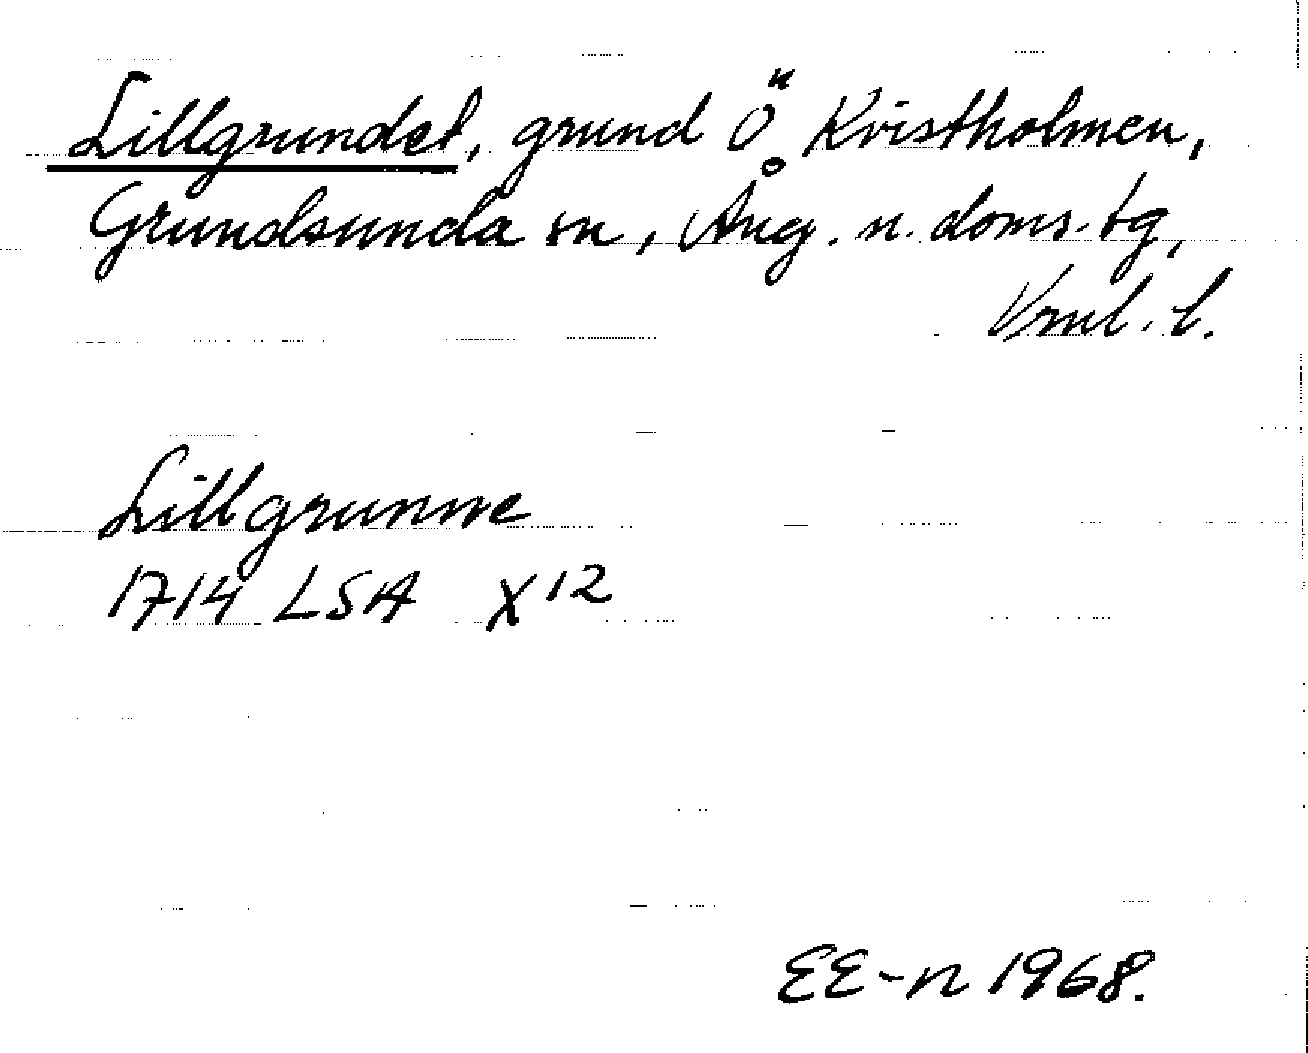 Lillgrundet, grund Ö Kvistholmen,
Grundsunda sn, Ång. n. doms. tg,
Vrnl. l.
Lillgrunne
1714 LSA X12
EE-n 1968.